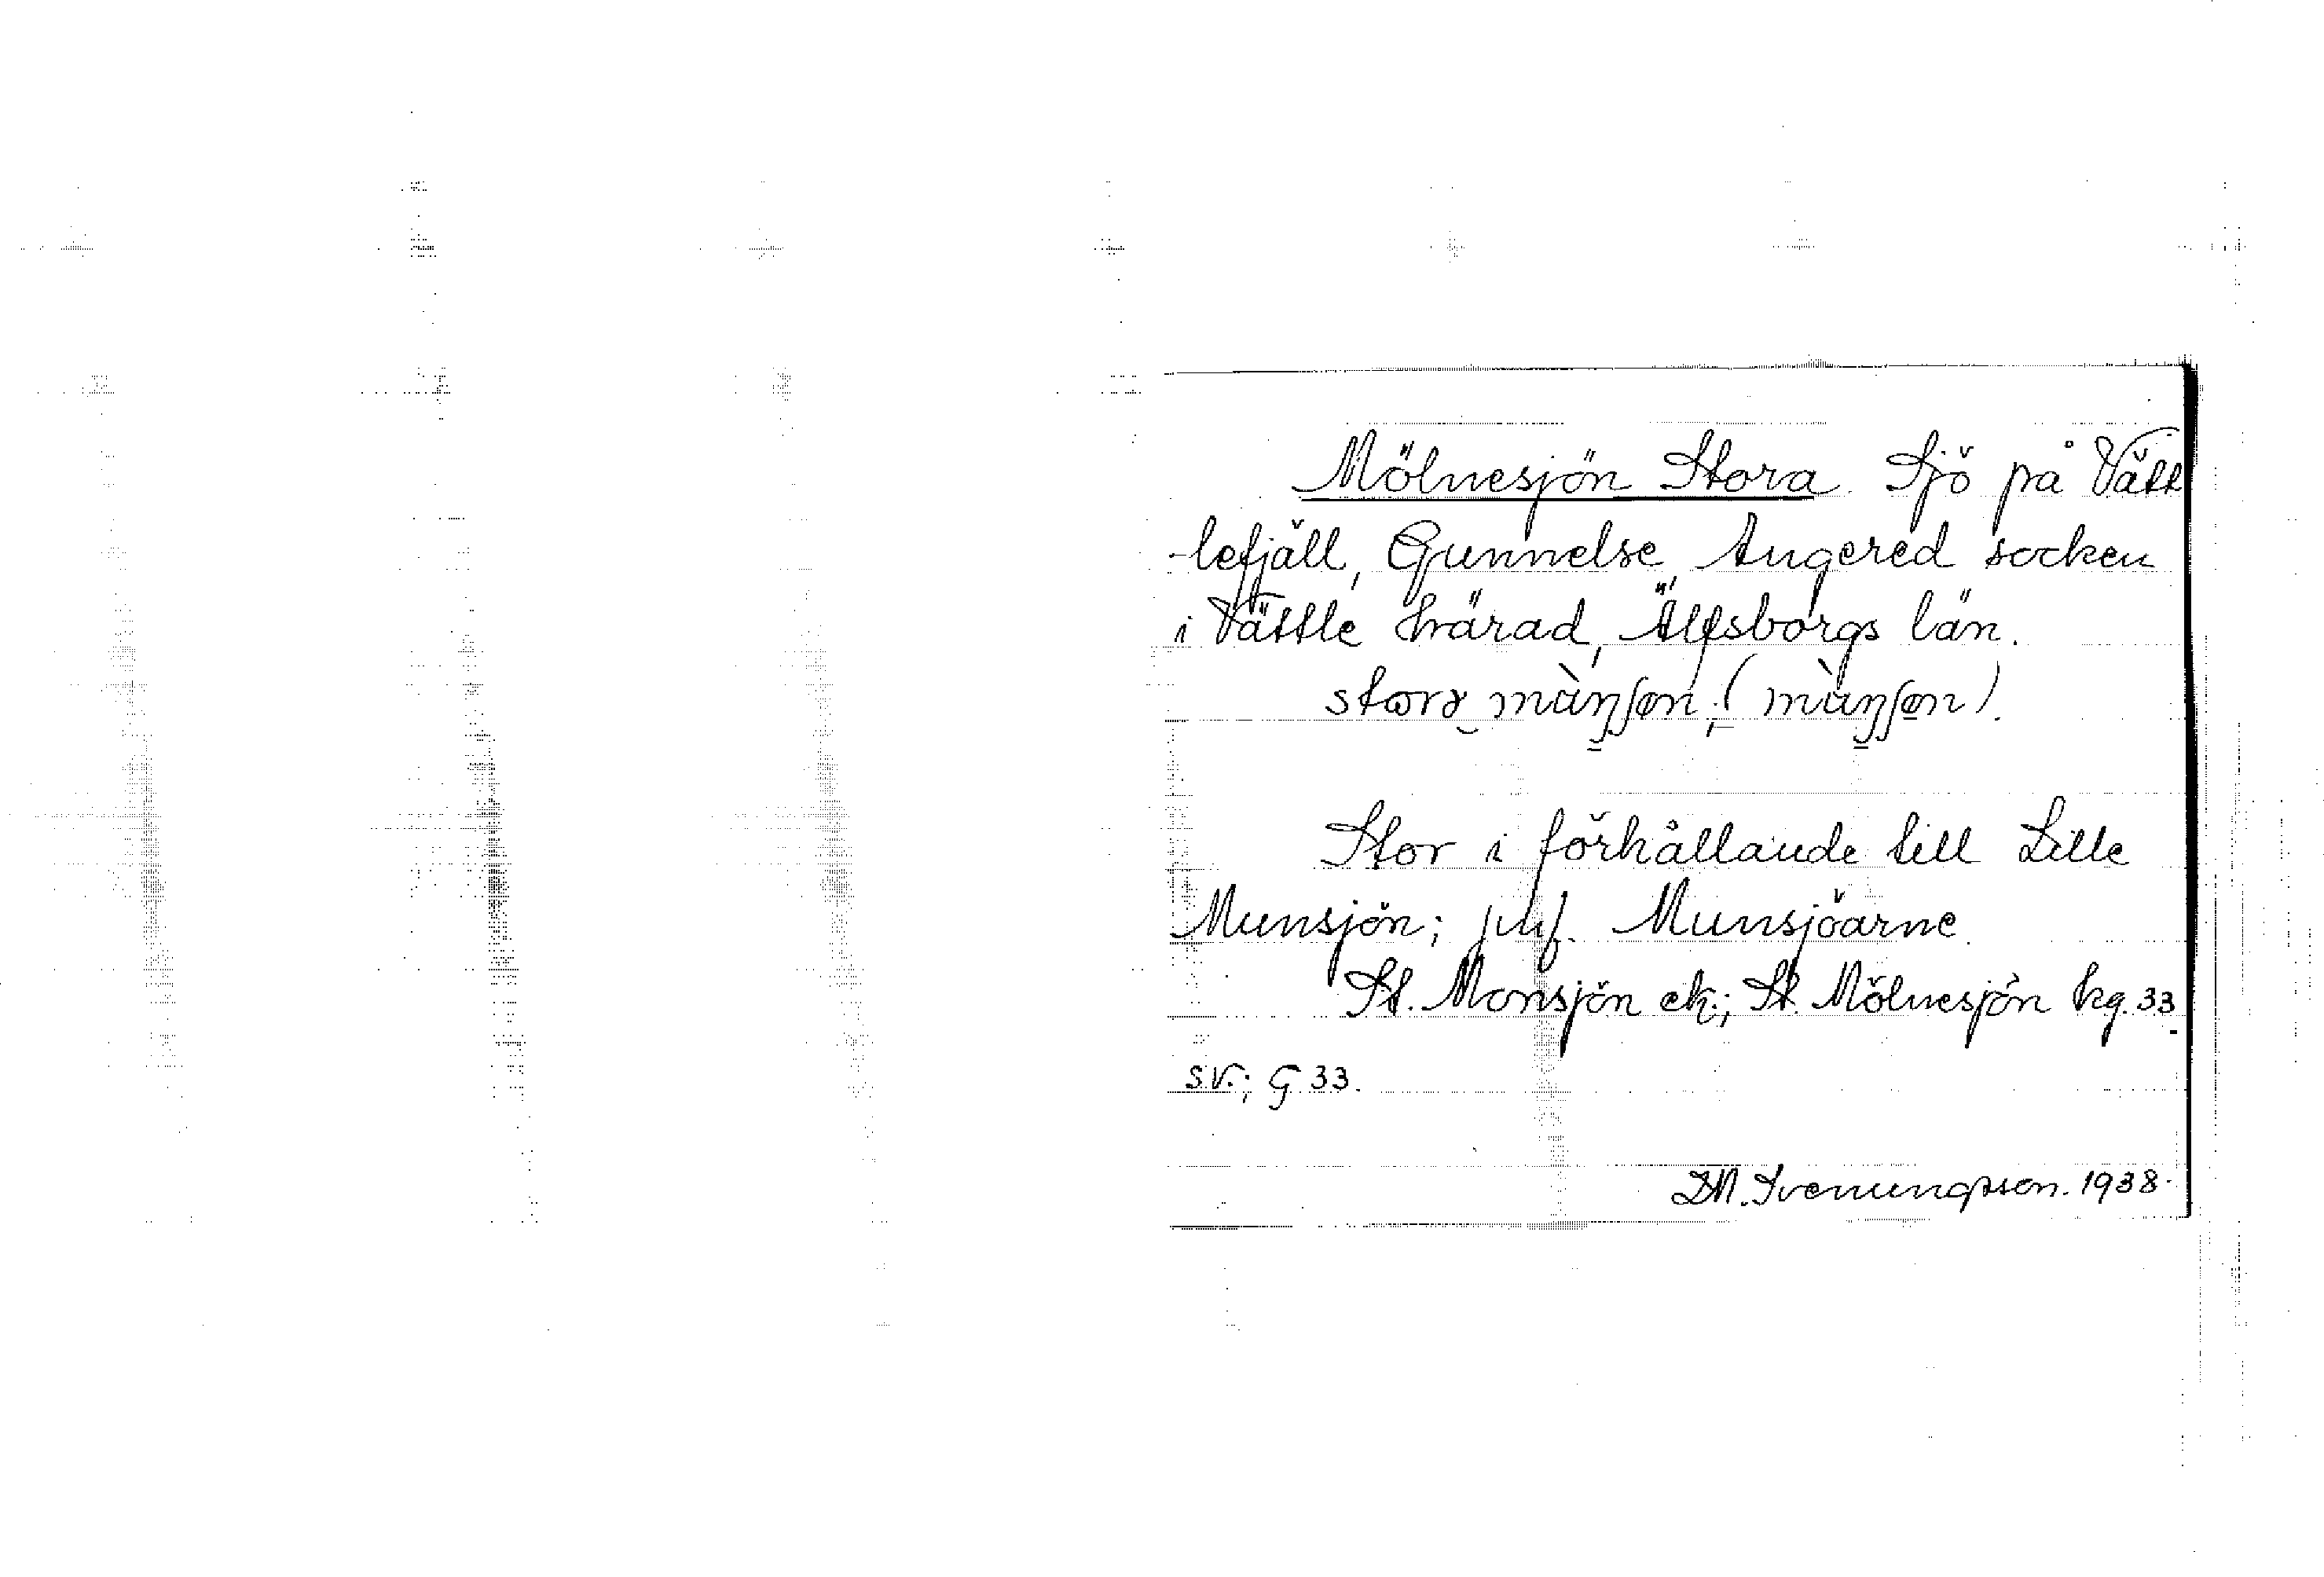 Mölnesjön Stora. Sjö på Vätt
-lefjäll, Gunnelse, Angered socken
i Vättle härad, Älfsborgs län.
Stor i förhållande till Lille
Munsjön; jmf. Munsjöarne.
St. Monsjön ek.; St. Mölnesjön kg. 33
S.V.; G 33.
D.M. Svenungsson. 1938.